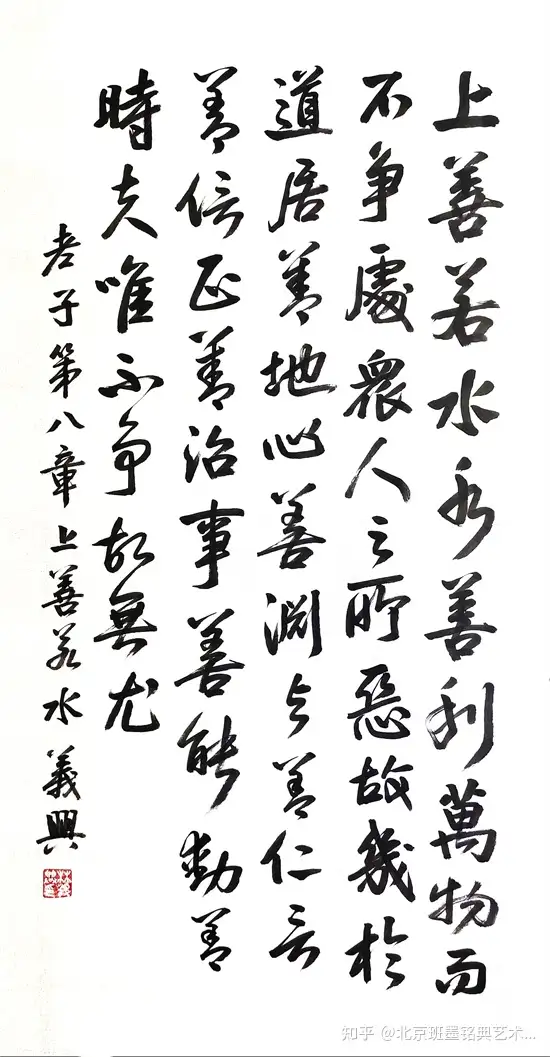 上善若水水善利萬物而
不争處衆人之所惡故幾於
道居善地心善淵与善仁言
善信正善治事善能動善
時夫唯不争故無尤
老子第八章上善若水 義興
知乎 @北京班墨铭典艺术...